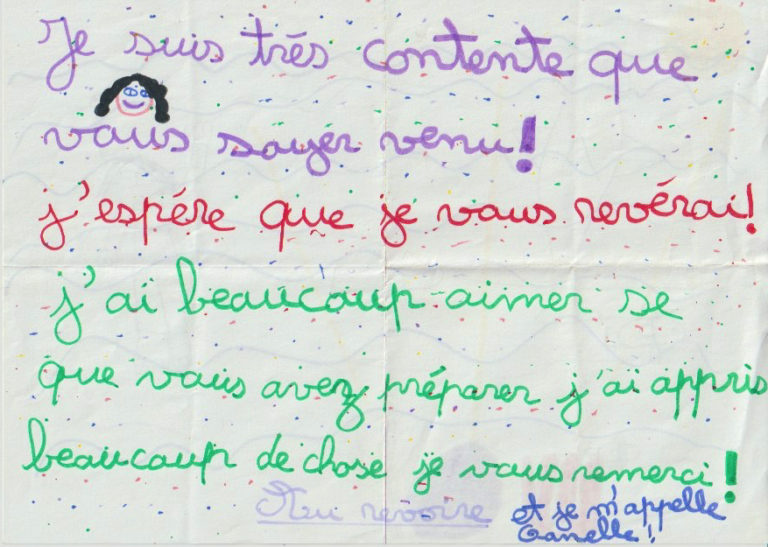 Je suis trés contente que
vous soyer venu!
j'espére que je vous revérai!
j'ai beaucoup aimer se
que vous avez préparer j'ai appris
beaucoup de chose je vous remerci!
Au revoire et je m'appelle